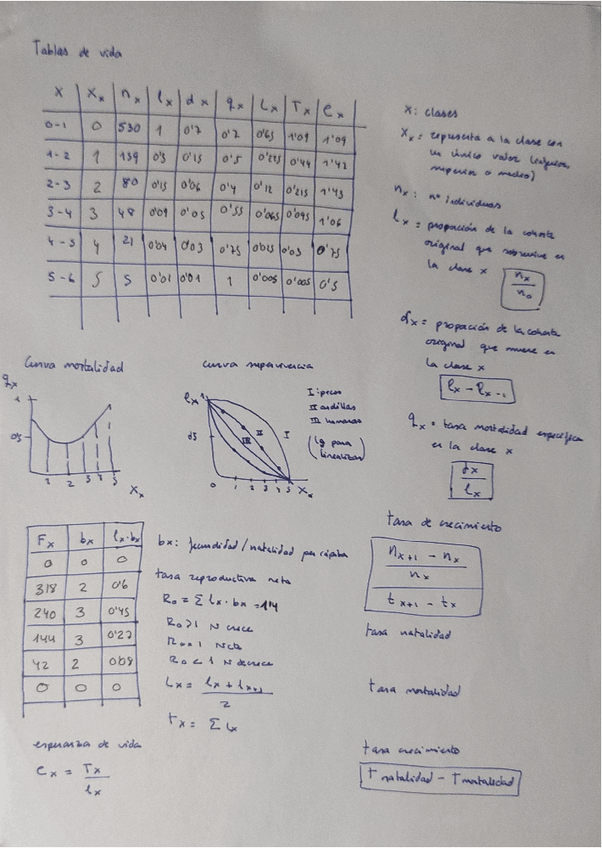 Tablas de vida
x Xx nx lx dx qx Lx Tx ex
0-1 0 530 1 0'7 0'7 0'65 1'09 1'09
1-2 1 159 0'3 0'15 0'5 0'225 0'44 1'42
2-3 2 80 0'15 0'06 0'4 0'12 0'215 1'43
3-4 3 48 0'09 0'05 0'55 0'065 0'095 1'06
4-5 4 21 0'04 0'03 0'75 0'025 0'03 0'75
5-6 5 5 0'01 0'01 1 0'005 0'005 0'5
x: clases
Xx = representa a la clase con
un único valor
superior o medio)
nx: nº individuos
lx = proporción de la cohorte
original que sobrevive en
la clase x nx
n0
dx = proporción de la cohorte
original que muere en
la clase x
lx - lx-1
qx = tasa mortalidad específica
en la clase x
dx
lx
Curva mortalidad
qx
1
0'5
1 2 3 4 5
Xx
curva supervivencia
lx 1
0'5
I
II
III
0 1 2 3 4 5
Xx
I: peces
II ardillas
III humanos
(lg para
linealizar)
Fx bx lx·bx
0 0 0
318 2 0'6
240 3 0'45
144 3 0'27
42 2 0'08
0 0 0
bx: fecundidad/natalidad per cápita
tasa reproductiva neta
R0 = Σ lx·bx = 1'4
R0>1 N crece
R0=1 N cte
R0<1 N decrece
Lx = lx + lx+1
2
Tx = Σ Lx
esperanza de vida
ex = Tx
lx
tasa de crecimiento
nx+1 - nx
nx
tx+1 - tx
tasa natalidad
tasa mortalidad
tasa crecimiento
T natalidad - T mortalidad